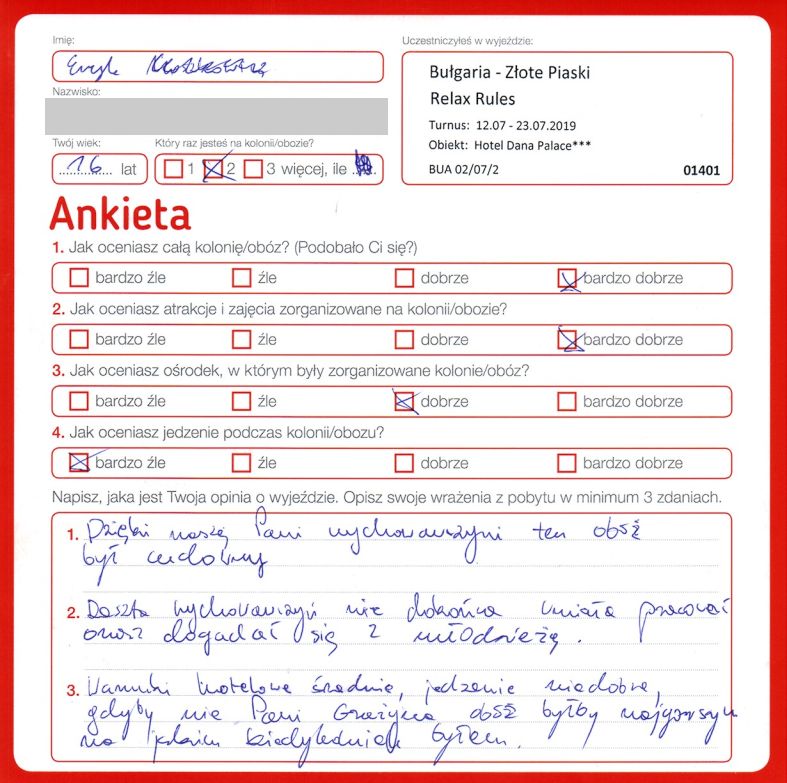 Imię:
Eryk
Nazwisko:
Twój wiek:
16 lat
Który raz jesteś na kolonii/obozie?
1 2 3 więcej, ile
Uczestniczyłeś w wyjeździe:
Bułgaria - Złote Piaski
Relax Rules
Turnus: 12.07 - 23.07.2019
Obiekt: Hotel Dana Palace***
BUA 02/07/2 01401
Ankieta
1. Jak oceniasz całą kolonię/obóz? (Podobało Ci się?)
bardzo źle źle dobrze bardzo dobrze
2. Jak oceniasz atrakcje i zajęcia zorganizowane na kolonii/obozie?
bardzo źle źle dobrze bardzo dobrze
3. Jak oceniasz ośrodek, w którym były zorganizowane kolonie/obóz?
bardzo źle źle dobrze bardzo dobrze
4. Jak oceniasz jedzenie podczas kolonii/obozu?
bardzo źle źle dobrze bardzo dobrze
Napisz, jaka jest Twoja opinia o wyjeździe. Opisz swoje wrażenia z pobytu w minimum 3 zdaniach.
1. Dzięki naszej Pani wychowawczyni ten obóz
był cudowny
2. Reszta wychowawczyń nie dokońca umiała pracować
oraz dogadać się z młodzieżą.
3. Warunki hotelowe średnie, jedzenie niedobre,
gdyby nie Pani Grażyna obóz byłby najgorszym
na jakim kiedykolwiek byłem.